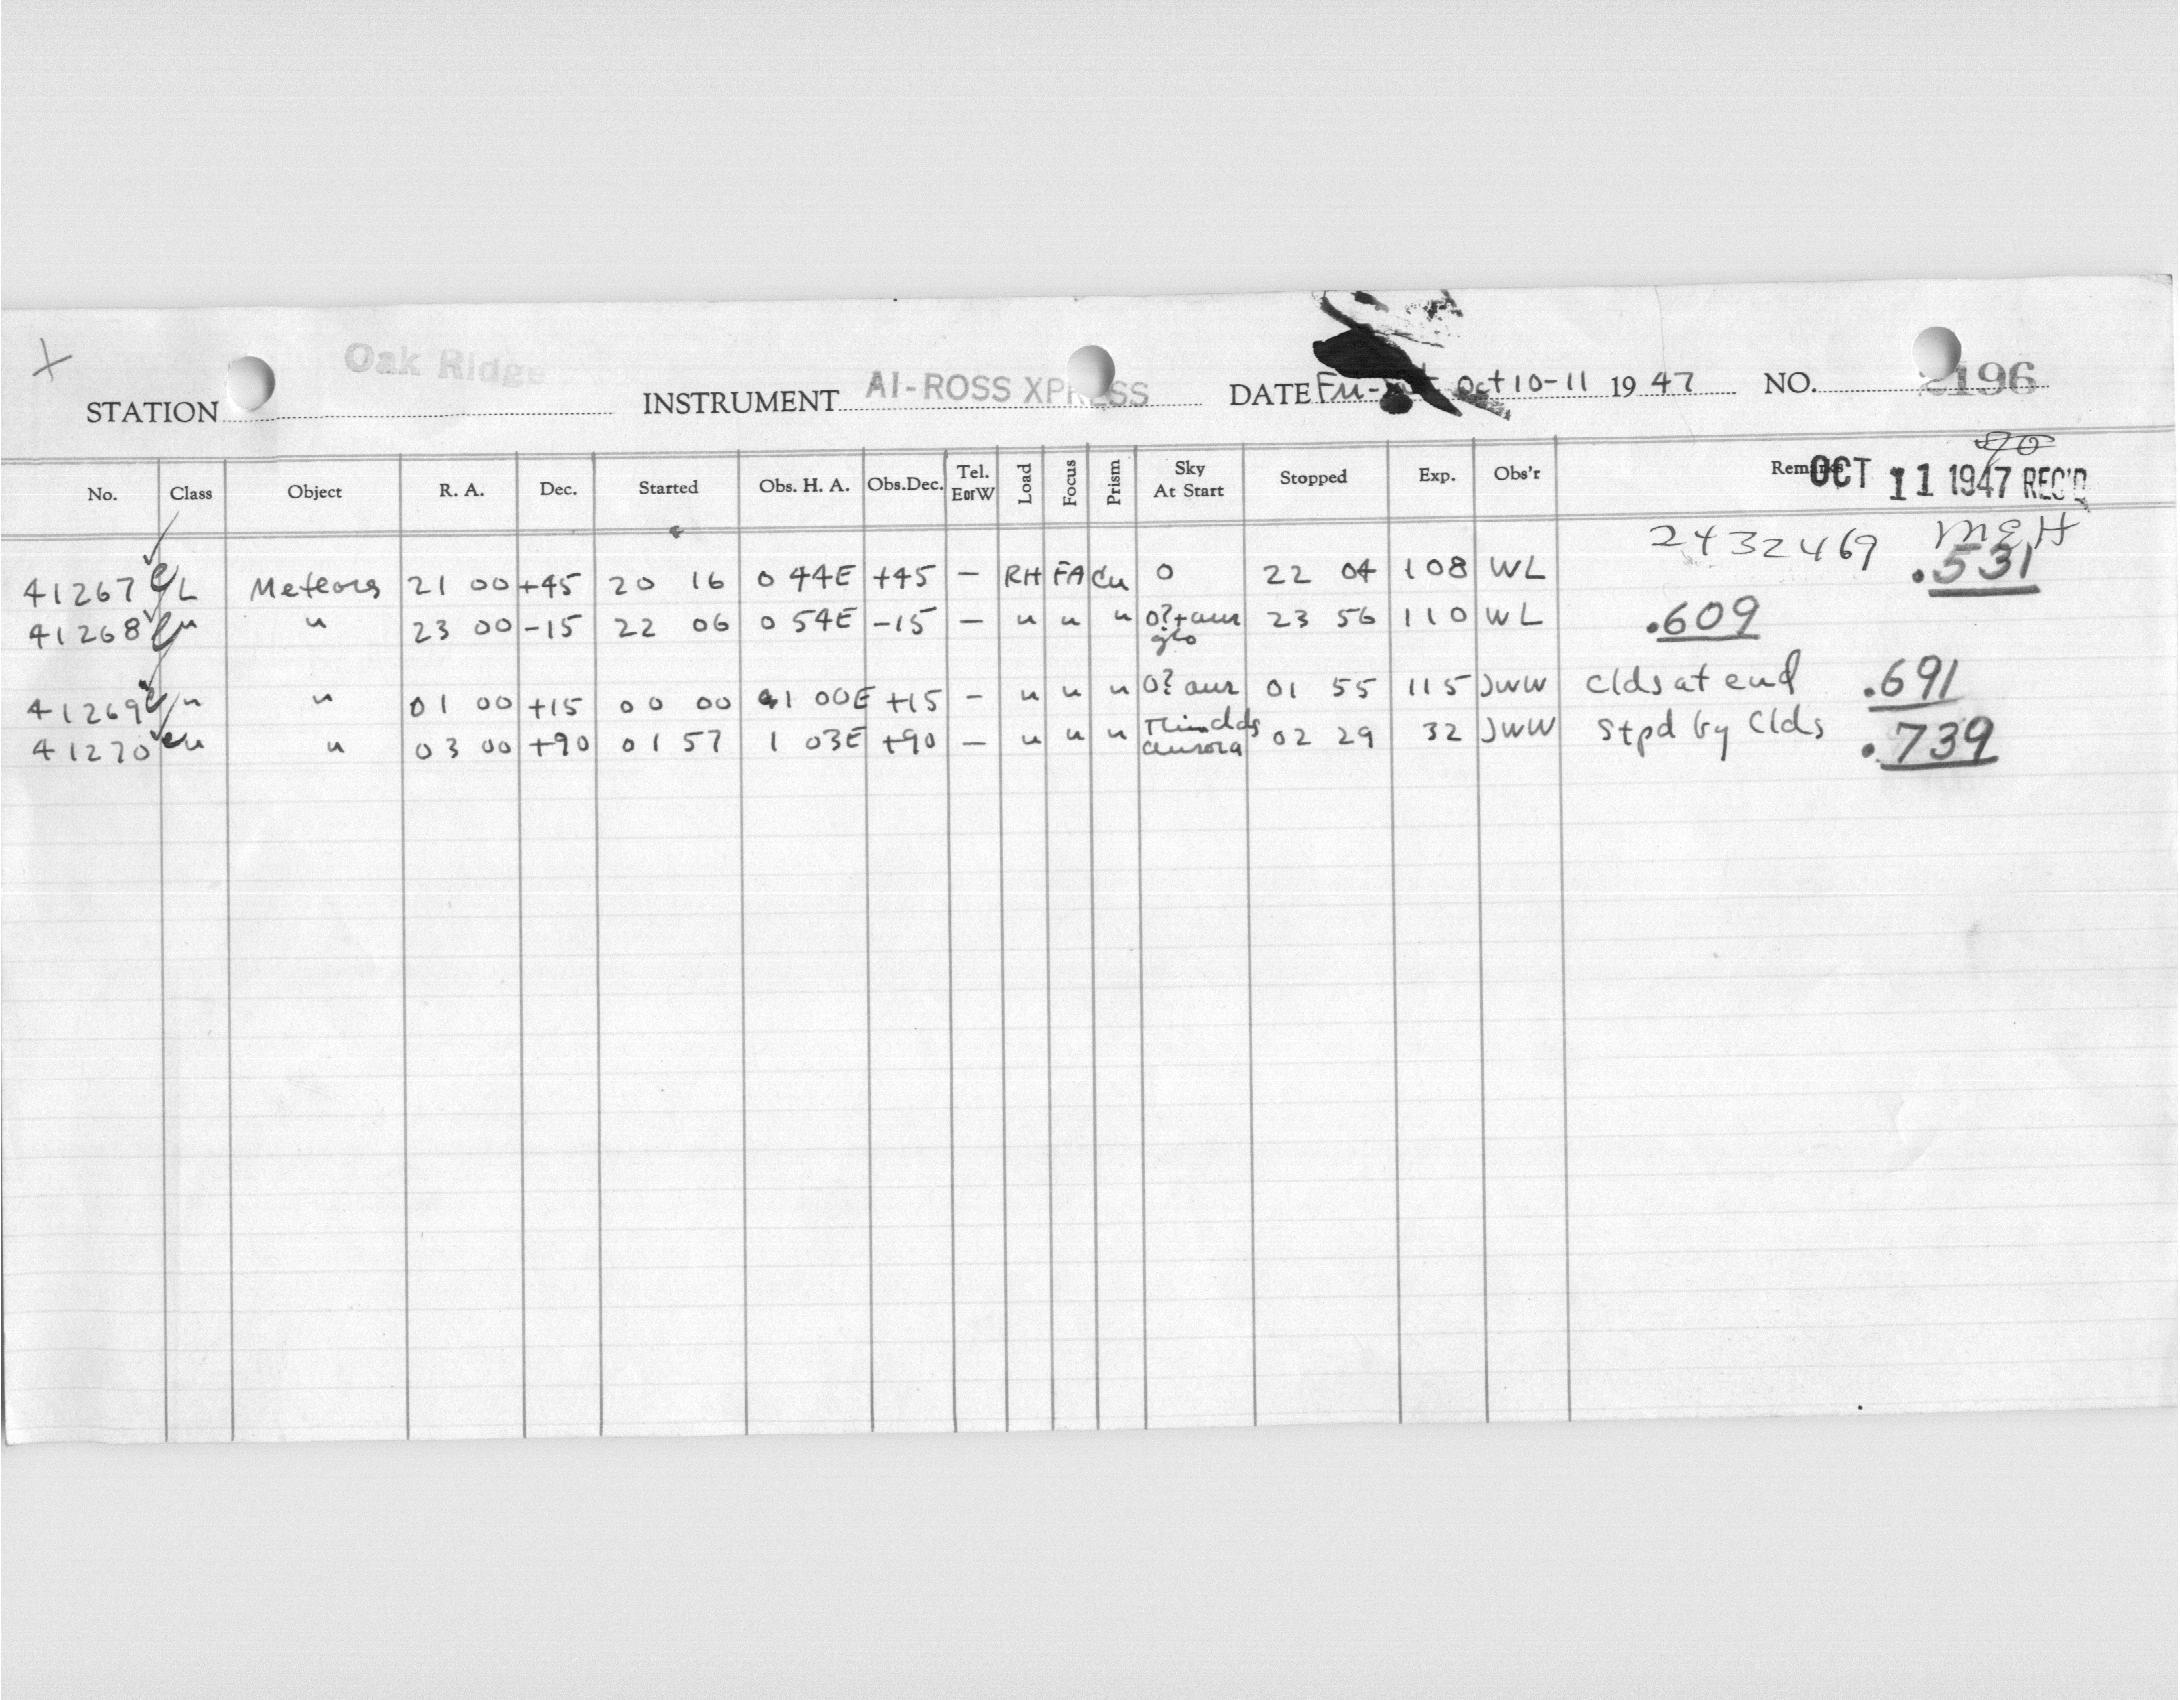 Oak Ridge
STATION INSTRUMENT AI-ROSS XPRESS DATE Fri- Oct 10-11 1947 NO. 2196
No. Class Object R. A. Dec. Started Obs. H. A. Obs.Dec. Tel. E or W Load Focus Prism Sky At Start Stopped Exp. Obs'r Remarks
OCT 11 1947 REC'D
2432469 MEH
41267 L Meteors 21 00 +45 20 16 0 44E +45 – RH FA Cu 0 22 04 108 WL .531
41268 " " 23 00 -15 22 06 0 54E -15 – " " " 0?+aur glo 23 56 110 WL .609
41269 " " 01 00 +15 00 00 01 00E +15 – " " " 0? aur 01 55 115 JWW Clds at end .691
41270 " " 03 00 +90 01 57 1 03E +90 – " " " Thin clds aurora 02 29 32 JWW Stpd by Clds .739